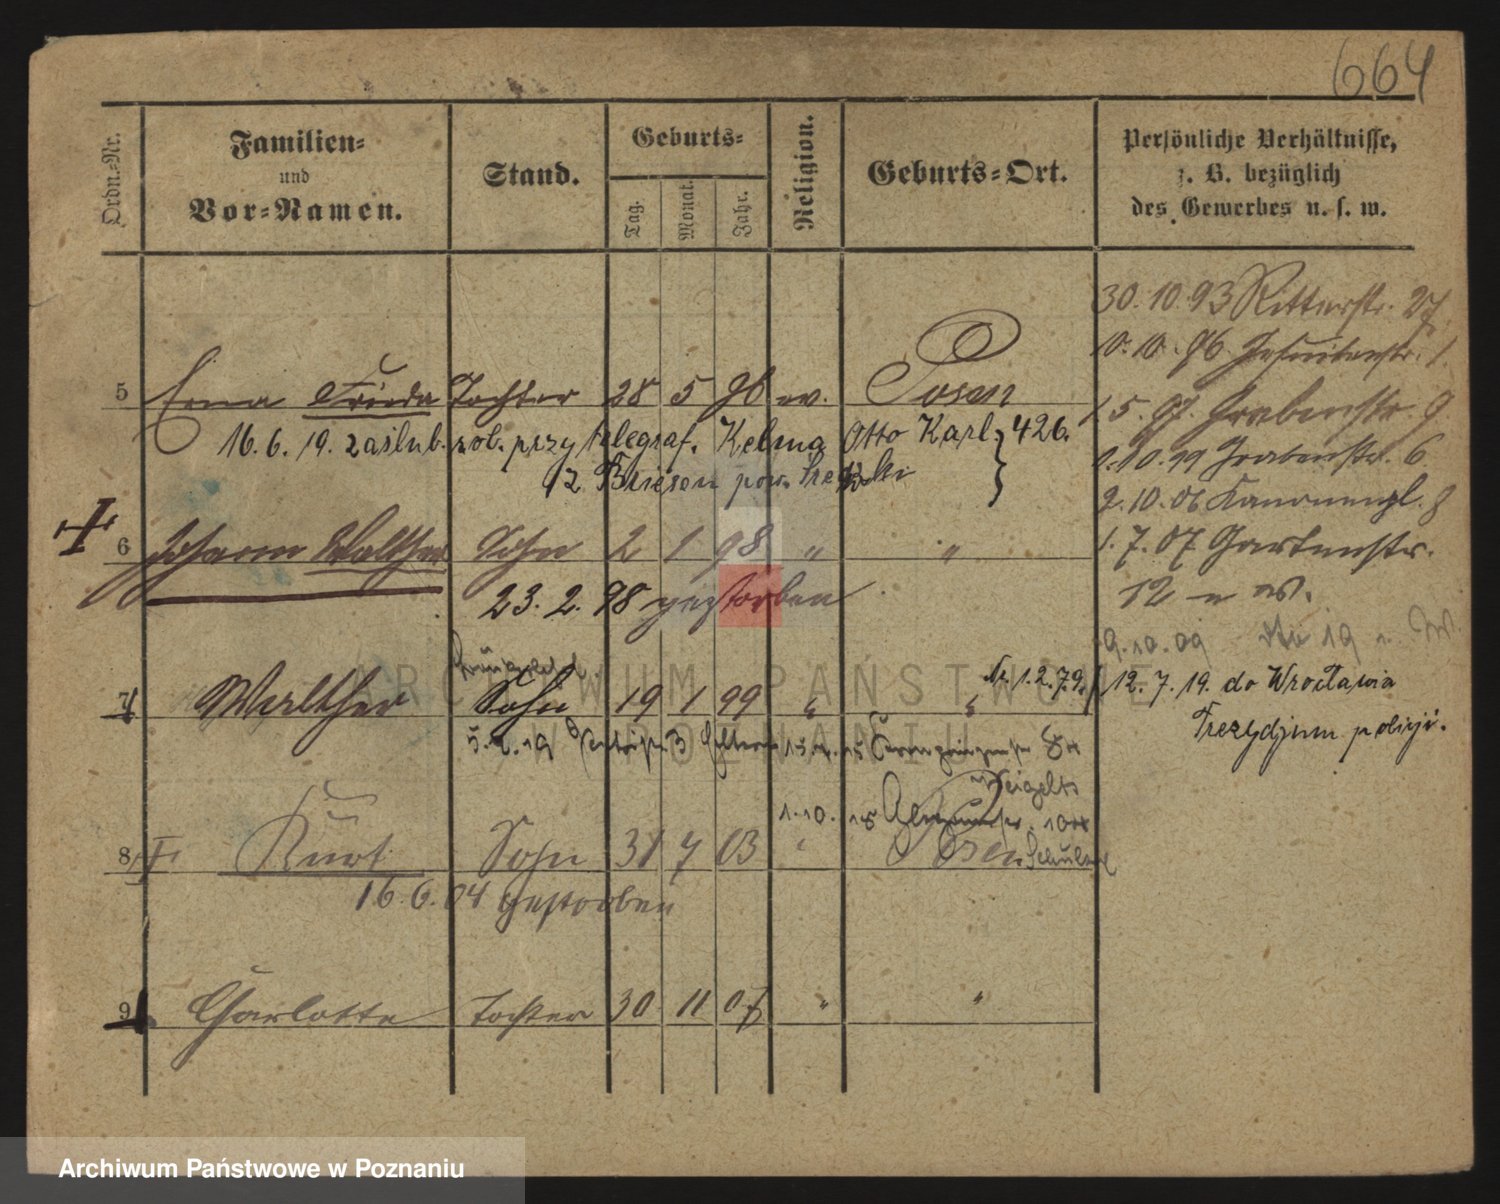 664
Ordn.-Nr.
Familien-
und
Vor-Namen.
Stand.
Geburts-
Tag.
Monat.
Jahr.
Religion.
Geburts-Ort.
Persönliche Verhältnisse,
z. B. bezüglich
des Gewerbes u. s. w.
30. 10. 93 Ritterstr. 27
10. 96 Jesuitenstr. 1
5 Erna Frieda Tochter 28 5 96 ev. Posen
5. 97. Grabenstr. 9
16. 6. 19. zaślub. rob. przy telegraf. Kelma Otto Karl 426.
10. 99 Grabenstr. 6
z Briesen pow.
2. 10. 06 Kanonenpl. 8
6 Johann Walther Sohn 2 1 98 " "
1. 7. 07 Gartenstr.
12 n W.
23. 2. 98 gestorben
9. 10. 09 19 W.
7 Walther Sohn 19 1 99 " " Nr. 1.2.79.
12. 7. 19. do Wrocławia
Prezydjum policji.
5. 2. 19
Weigelt
1. 10. 18
8 Kurt Sohn 31 7 03 " Posen Schulz
16. 6. 04 gestorben
9 Charlotte Tochter 30 11 07 " "
ARCHIWUM PAŃSTWOWE
W POZNANIU
Archiwum Państwowe w Poznaniu